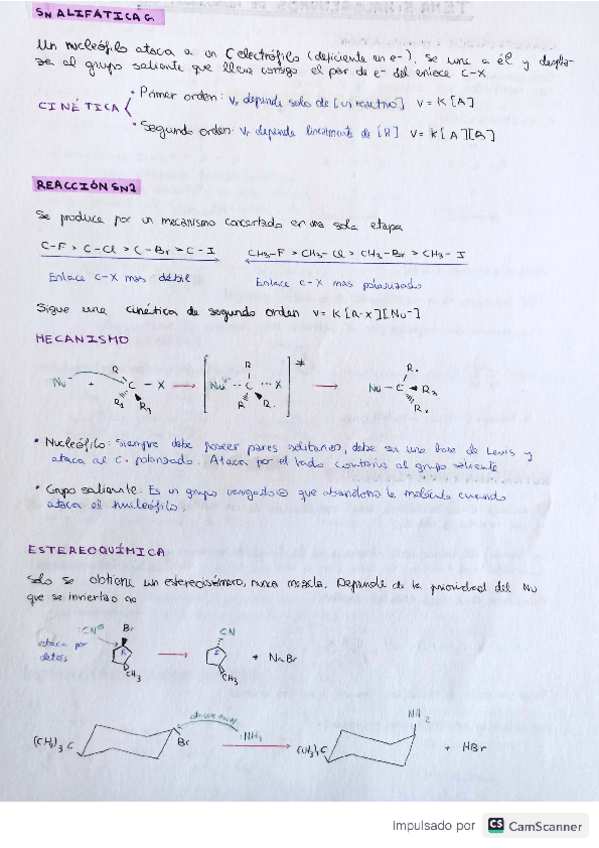 SN ALIFÁTICA
Un nucleófilo ataca a un C electrófilo (deficiente en e-), se une a él y despla-
za al grupo saliente que lleva consigo el par de e- del enlace C-X
CINÉTICA
• Primer orden: Vr depende solo de [un reactivo] V = K [A]
• Segundo orden: Vr depende linealmente de [R] V = K [A][A]
REACCIÓN SN2
Se produce por un mecanismo concertado en una sola etapa
C-F > C-Cl > C-Br > C-I CH3-F > CH3-Cl > CH3-Br > CH3-I
Enlace C-X mas débil Enlace C-X mas polarizado
Sigue una cinética de segundo orden V = K [R-X][Nu-]
MECANISMO
Nu- + R C - X R1 R2 [Nu C X R R R]* Nu - C R R R
• Nucleófilo: Siempre debe poseer pares solitarios, debe ser una base de Lewis y
ataca al C+ polarizado. Ataca por el lado contrario al grupo saliente
• Grupo saliente: Es un grupo cargado que abandona la molécula cuando
ataca el nucleófilo.
ESTEREOQUÍMICA
Solo se obtiene un estereoisómero, nunca mezcla. Depende de la prioridad del Nu
que se invierta o no
CN⊖ Br CN
ataca por
detrás R S + NaBr
CH3 CH3
:NH3 NH2
(CH3)3C Br (CH3)3C + HBr
Impulsado por CS CamScanner